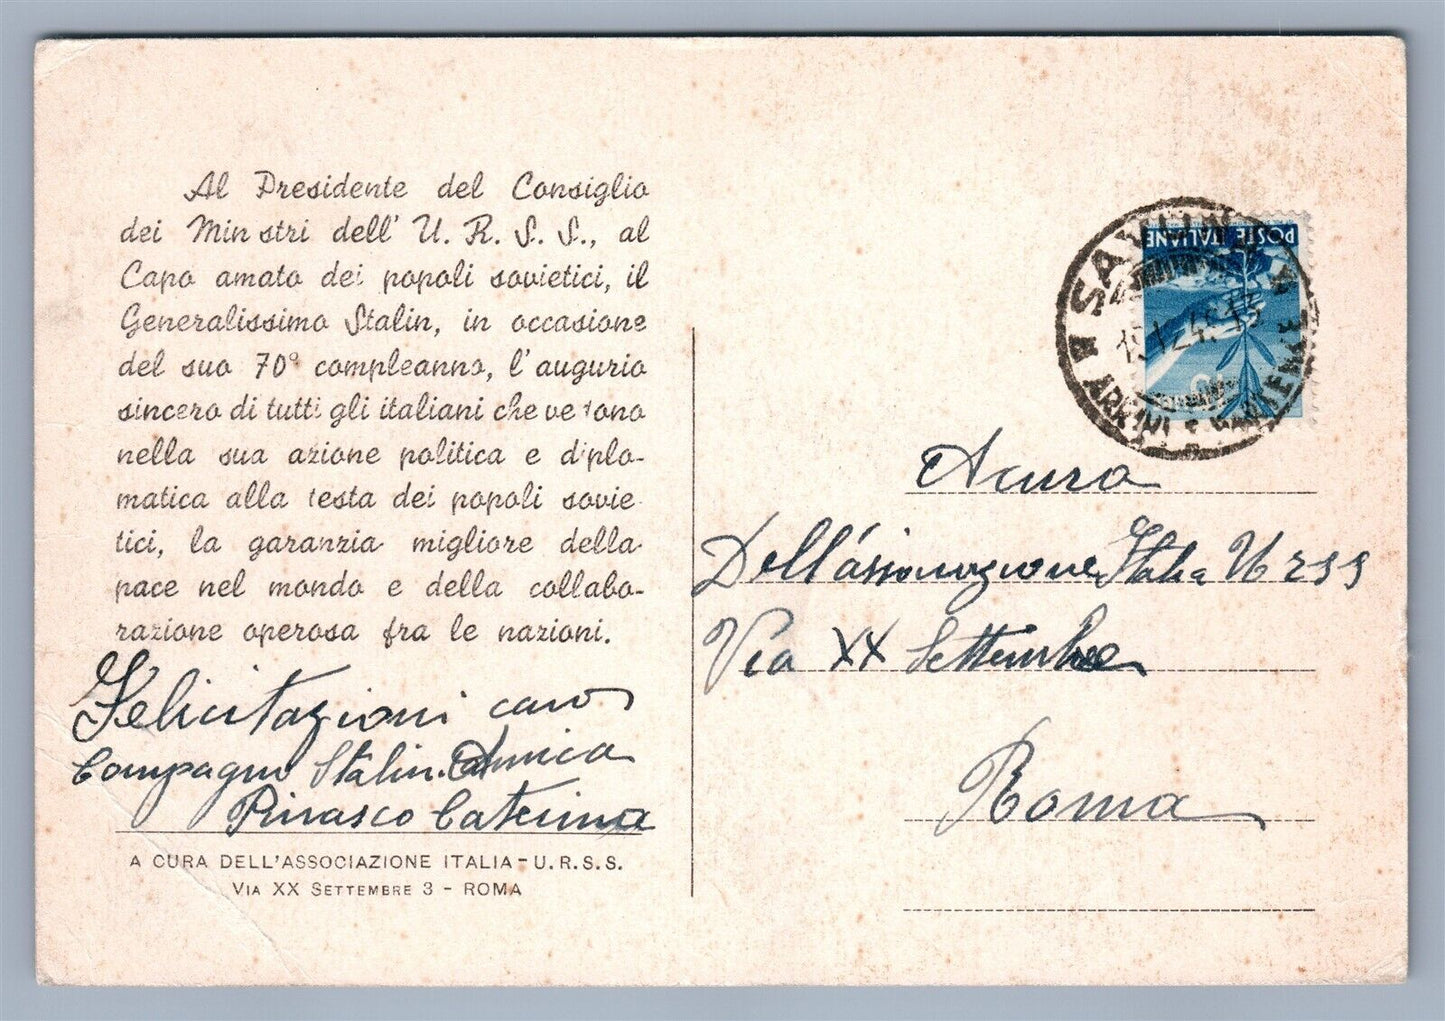 Al Presidente del Consiglio
dei Ministri dell' U. R. S. S., al
Capo amato dei popoli sovietici, il
Generalissimo Stalin, in occasione
del suo 70° compleanno, l'augurio
sincero di tutti gli italiani che vedono
nella sua azione politica e diplo-
matica alla testa dei popoli sovie-
tici, la garanzia migliore della
pace nel mondo e della collabo-
razione operosa fra le nazioni.
Felicitazioni caro
Compagno Stalin. Amica
Rivasco Caterina
A CURA DELL'ASSOCIAZIONE ITALIA-U.R.S.S.
VIA XX SETTEMBRE 3 - ROMA
POSTE ITALIANE
10
Acura
Dell'assionazione Italia Urss
Via XX Settembre
Roma